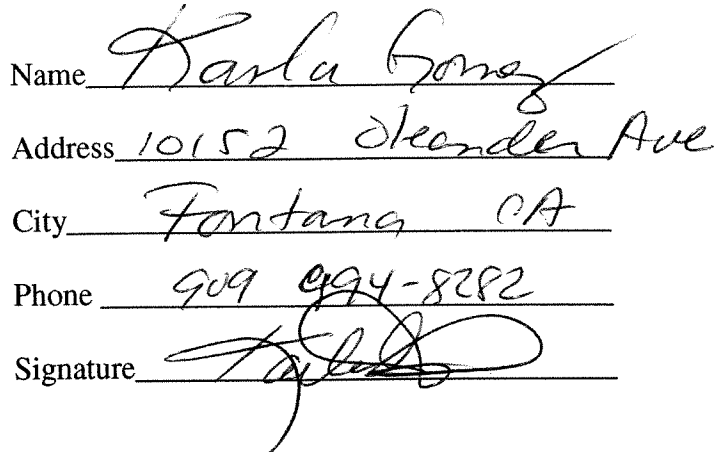 Name Karla Gomez
Address 10152 Oleander Ave
City Fontana CA
Phone 909 994-8282
Signature